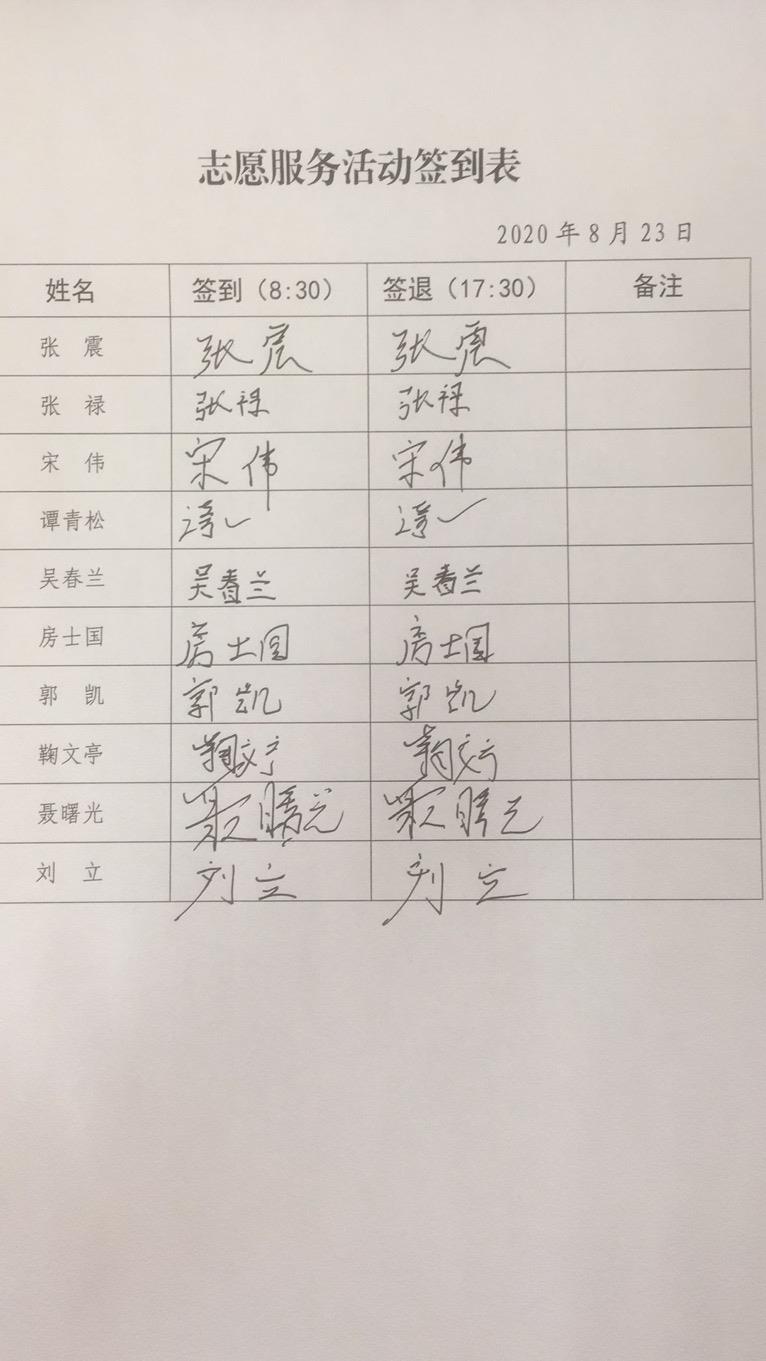 志愿服务活动签到表
2020年8月23日
姓名 签到（8:30） 签退（17:30） 备注
张 震 张震 张震
张 禄 张禄 张禄
宋 伟 宋伟 宋伟
谭青松
吴春兰 吴春兰 吴春兰
房士国 房士国 房士国
郭 凯 郭凯 郭凯
鞠文亭 鞠文亭 鞠文亭
聂曙光 聂曙光 聂曙光
刘 立 刘立 刘立